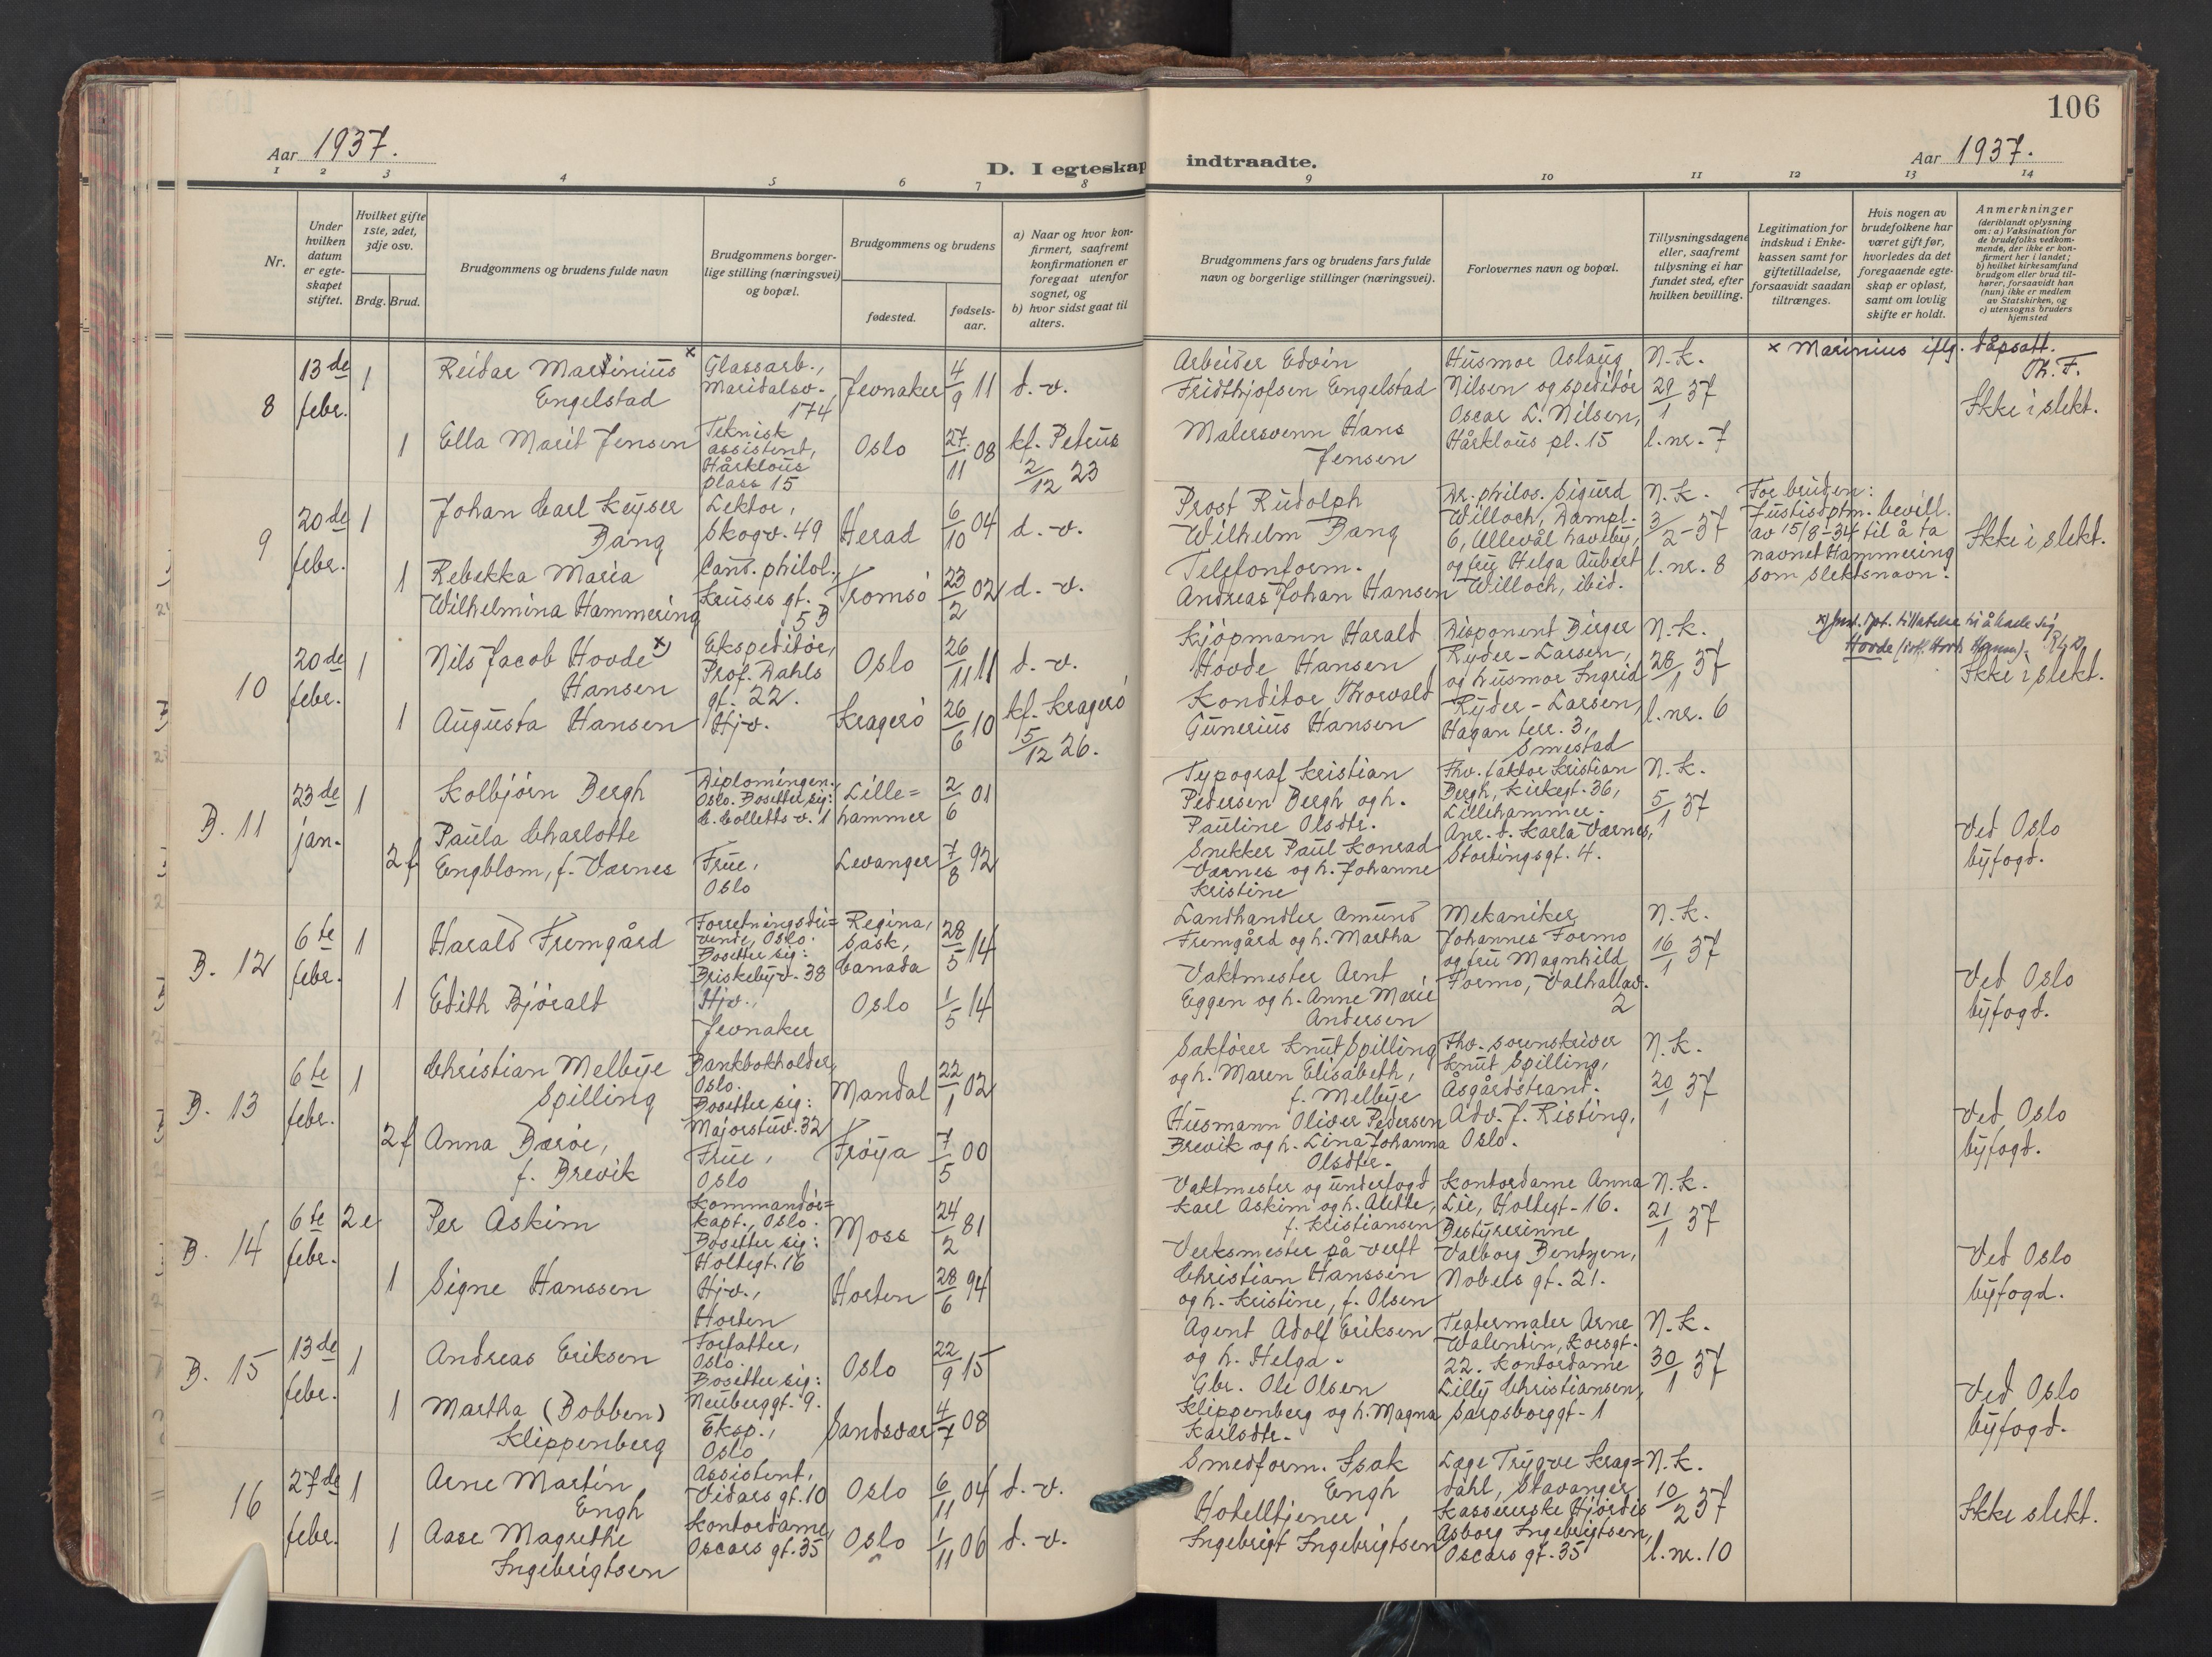 106
Aar 1937.
D. I egteskap indtraadte.
Aar 1937.
1 2 3 4 5 6 7 8 9 10 11 12 13 14
Nr.
Under hvilken datum er egteskapet stiftet.
Hvilket gifte 1ste, 2det, 3dje osv.
Brdg. Brud.
Brudgommens og brudens fulde navn
Brudgommens borgerlige stilling (næringsvei) og bopæl.
Brudgommens og brudens
fødested.
fødselsaar.
a) Naar og hvor konfirmert, saafremt konfirmationen er foregaat utenfor sognet, og
b) hvor sidst gaat til alters.
Brudgommens fars og brudens fars fulde navn og borgerlige stillinger (næringsvei).
Forlovernes navn og bopæl.
Tillysningsdagene eller, saafremt tillysning ei har fundet sted, efter hvilken bevilling.
Legitimation for indskud i Enkekassen samt for giftetilladelse, forsaavidt saadan tiltrænges.
Hvis nogen av brudefolkene har været gift før, hvorledes da det foregaaende egteskap er opløst, samt om lovlig skifte er holdt.
Anmerkninger
(deriblandt oplysning om: a) Vaksination for de brudefolks vedkommende, der ikke er konfirmert her i landet;
b) hvilket kirkesamfund brudgom eller brud tilhører, forsaavidt han (hun) ikke er medlem av Statskirken, og
c) utensogns bruders hjemsted
8
13de febr.
1
Reidar Martinius x
Engelstad
Glassarb.,
Maridalsv.
174
Jevnaker
4/9 11
d. v.
Arbeider Edvin
Fridthjofsen Engelstad
Husmor Aslaug
Nilsen og speditør
Oscar L. Nilsen,
Hårklous pl. 15
N. k.
29/1 37
l. nr. 7
x Marinius iflg. dåpsatt.
Th. F.
Ikke i slekt.
1
Ella Marit Jensen
Teknisk
assistent,
Hårklous
plass 15
Oslo
27/11 08
kf. Petrus
2/12 23
Malersvenn Hans
Jensen
9
20de febr.
1
Johan Carl Keyser
Bang
Lektor,
Skogv. 49
Herad
6/10 04
d. v.
Prost Rudolph
Wilhelm Bang
Dr. philos. Sigurd
Willoch, Dampl.
6, Ullevål haveby,
og fru Helga Aubert
Willoch, ibid.
N. k.
3/2 - 37
l. nr. 8
For bruden:
Justisdptm. bevill.
av 15/8-34 til å ta
navnet Hammering
som slektsnavn.
Ikke i slekt.
1
Rebekka Maria
Wilhelmina Hammering
Cand. philol.,
Kruses gt.
5 B
Tromsö
23/2 02
d. v.
Telefonform.
Andreas Johan Hansen
10
20de febr.
1
Nils Jacob Hovde x)
Hansen
Ekspeditör,
Prof. Dahls
gt. 22.
Oslo
26/11 11
d. v.
Kjöpmann Harald
Hovde Hansen
Disponent Birger
Ryder-Larsen,
og husmor Ingrid
Ryder-Larsen,
Hagan terr. 3,
Smestad
N. k.
28/1 37
l. nr. 6
x) Just. dpt. tillatelse til å kalle sig
Hovde
Ikke i slekt.
1
Augusta Hansen
Hjv.
Kragerö
26/6 10
kf. Kragerö
5/12 26.
Konditor Thorvald
Gunerius Hansen
B. 11
23de jan.
1
Kolbjörn Bergh
Diplomingen.,
Oslo. Bosetter sig:
C. Colletts v. 1
Lille=
hammer
2/6 01
Typograf Kristian
Pedersen Bergh og h.
Pauline Olsdtr.
Fhv. faktor Kristian
Bergh, Kirkegt. 36,
Lillehammer.
Apr. d. Karla Værnes,
Stortingsgt. 4.
N. k.
5/1 37
Ved Oslo
byfogd.
2 f
Paula Charlotte
Engblom, f. Værnes
Frue,
Oslo
Levanger
7/8 92
Snekker Paul Konrad
Værnes og h. Johanne
Kristine
B. 12
6te febr.
1
Harald Fremgård
Forretningsdri=
vende, Oslo.
Bosetter sig:
Briskebyv. 38
Regina,
Sask,
Canada
28/5 14
Landhandler Amund
Fremgård og h. Martha
Mekaniker
Johannes Formo
og fru Magnhild
Formo, Valhallav.
2
N. k.
16/1 37
Ved Oslo
byfogd.
1
Edith Björalt
Hjv.,
Jevnaker
Oslo
1/5 14
Vaktmester Arnt
Eggen og h. Anne Marie
Andersen
B. 13
6te febr.
1
Christian Melbye
Spilling
Bankbokholder,
Oslo.
Bosetter sig:
Majorstuv. 32
Mandal
22/1 02
Sakförer Knut Spilling
og h. Maren Elisabeth,
f. Melbye
Fhv. sorenskriver
Knut Spilling,
Åsgårdstrand.
Adv. F. Risting,
Oslo.
N. k.
20/1 37
Ved Oslo
byfogd.
2 f
Anna Barøe,
f. Brevik
Frue,
Oslo
Fröya
7/5 00
Husmann Oliver Pedersen
Brevik og h. Lina Johanna
Olsdtr.
B. 14
6te febr.
2 e
Per Askim
Kommandör=
kapt., Oslo.
Bosetter sig:
Holtegt. 16
Moss
24/2 81
Vaktmester og underfogd
Karl Askim og h. Alette,
f. Kristiansen
Kontordame Anna
Lie, Holtegt. 16.
Bestyrerinne
Valborg Bentzen,
Nobels gt. 21.
N. k.
21/1 37
Ved Oslo
byfogd.
1
Signe Hanssen
Hjv.,
Horten
Horten
28/6 94
Verksmester på verft
Christian Hanssen
og h. Kristine, f. Olsen
B. 15
13de febr.
1
Andreas Eriksen
Forfatter,
Oslo.
Bosetter sig:
Neuberggt. 9.
Oslo
22/9 15
Agent Adolf Eriksen
og h. Helga.
Teatermaler Arne
Walentin, Korsgt.
22. Kontordame
Lilly Christiansen,
Sarpsborggt. 1
N. k.
30/1 37
Ved Oslo
byfogd.
1
Martha (Bobben)
Klippenberg
Eksp.,
Oslo
Sandsvær
4/7 08
Gbr. Ole Olsen
Klippenberg og h. Magna
Karlsdtr.
16
27de febr.
1
Arne Martin
Engh
Assistent,
Vidars gt. 10
Oslo
6/11 04
d. v.
Smedform. Isak
Engh
Læge Trygve Krag=
dahl, Stavanger
Kassererske Hjördis
Asborg Ingebrigtsen,
Oscars gt. 35
N. k.
10/2 37
l. nr. 10
Ikke slekt.
1
Aase Magrethe
Ingebrigtsen
Kontordame,
Oscars gt. 35
Oslo
1/11 06
d. v.
Hotelltjener
Ingebrigt Ingebrigtsen